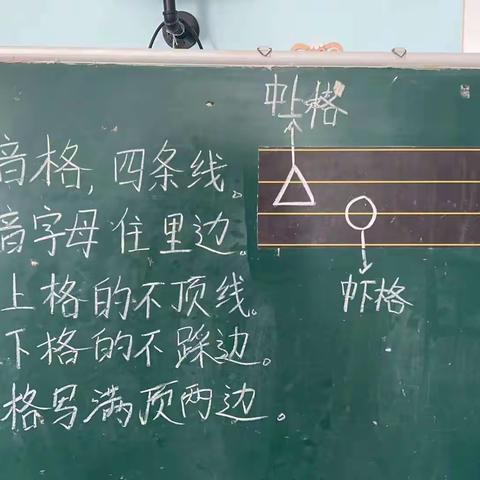 中上格
音格,四条线。
音字母住里边。
上格的不顶线。
中下格
下格的不踩边。
格写满顶两边。